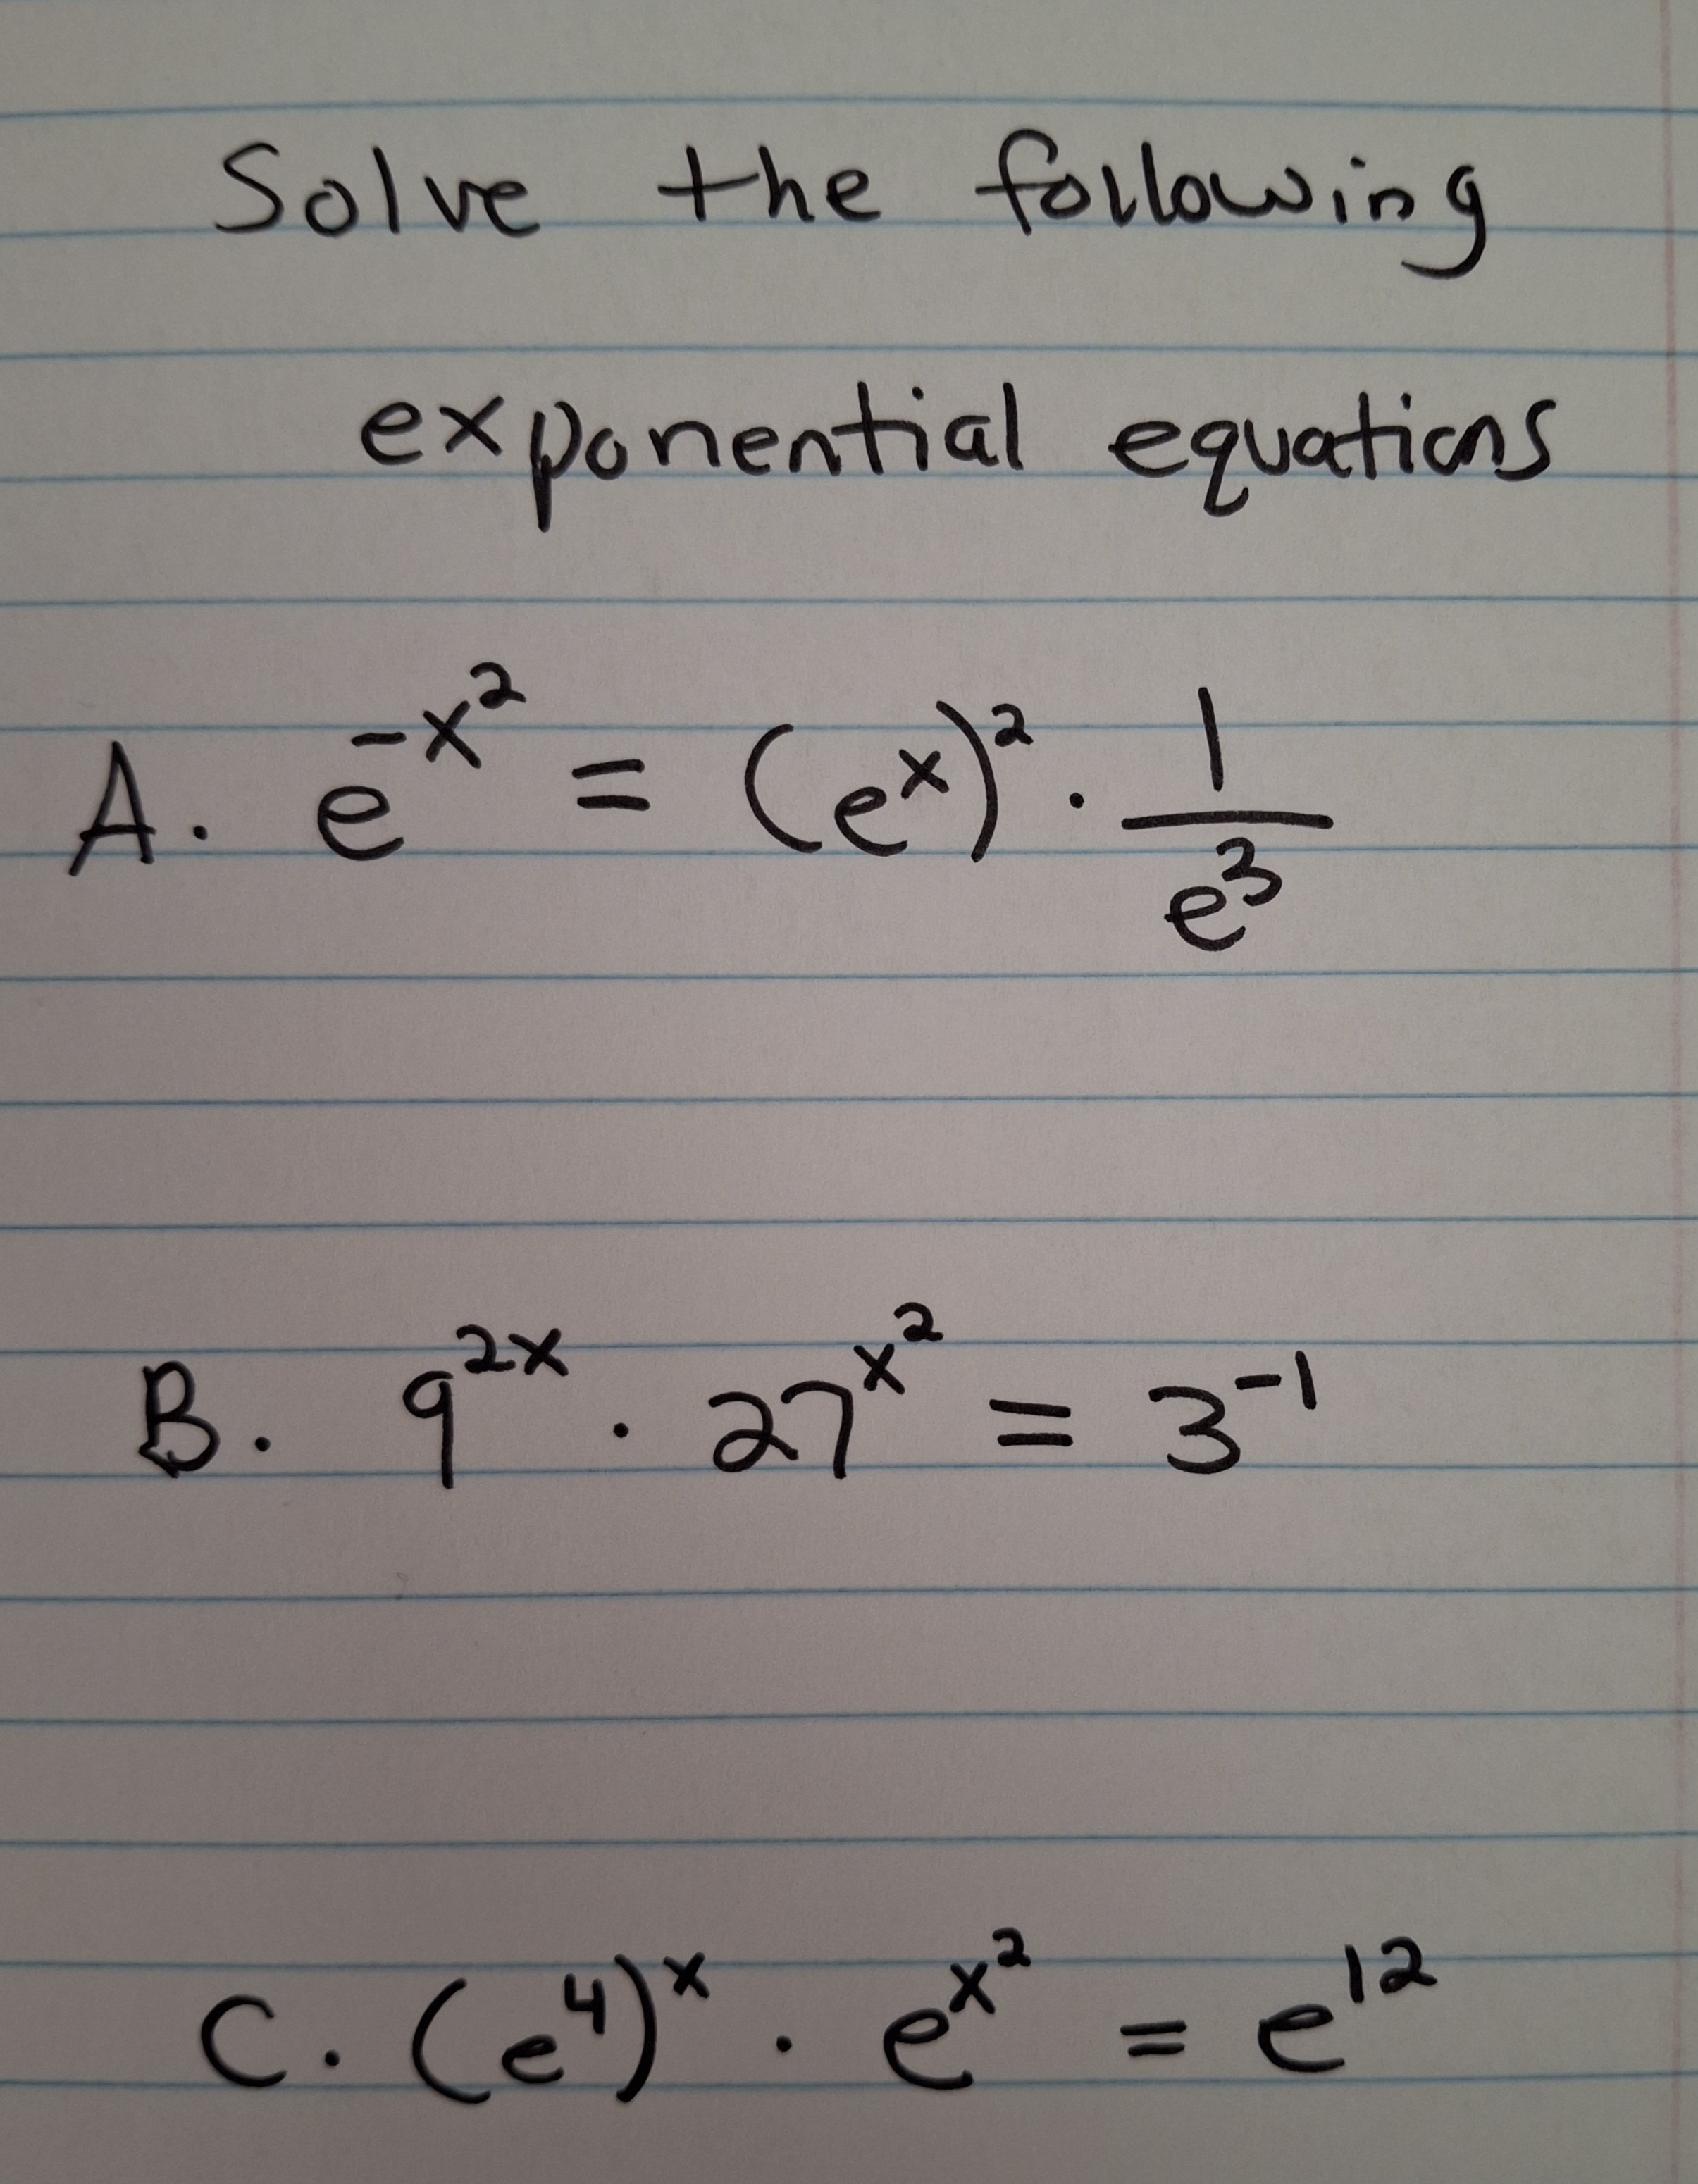 Solve the following
exponential equations
A. e^{-x^2} = (e^x)^2 · \frac{1}{e^3}
B. 9^{2x} · 27^{x^2} = 3^{-1}
C. (e^4)^x · e^{x^2} = e^{12}